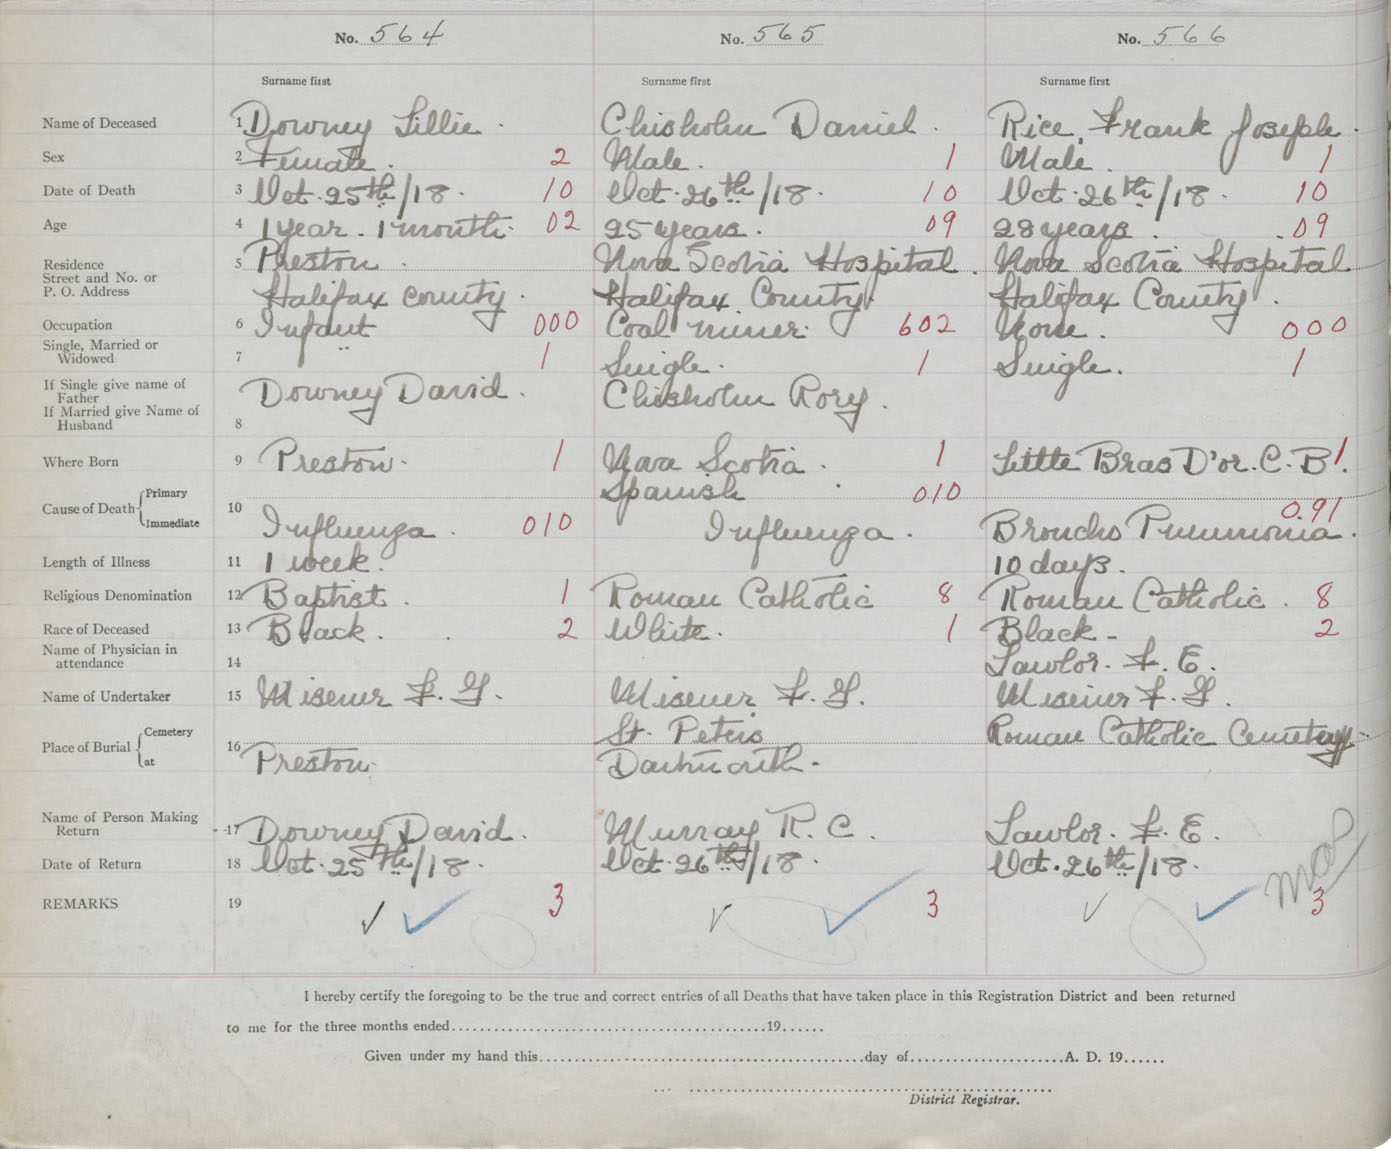 No. 564 No. 565 No. 566
Surname first Surname first Surname first
Name of Deceased 1 Downey Lillie. Chisholm Daniel. Rice, Frank Joseph.
Sex 2 Female. 2 Male. 1 Male. 1
Date of Death 3 Oct. 25th/18. 10 Oct. 26th/18. 10 Oct. 26th/18. 10
Age 4 1 year. 1 month. 02 25 years. 09 28 years. 09
Residence 5 Preston Nova Scotia Hospital. Nova Scotia Hospital
Street and No. or
P. O. Address Halifax County. Halifax County. Halifax County.
Occupation 6 Infant 000 Coal miner. 602 None. 000
Single, Married or
Widowed 7 1 Single. 1 Single. 1
If Single give name of
Father Downey David. Chisholm Rory.
If Married give Name of
Husband 8
Where Born 9 Preston. 1 Nova Scotia. 1 Little Bras D'or. C. B. 1
Cause of Death Primary Spanish 010
10 091
Immediate Influenza. 010 Influenza. Broncho Pneumonia.
Length of Illness 11 1 week. 10 days.
Religious Denomination 12 Baptist. 1 Roman Catholic 8 Roman Catholic. 8
Race of Deceased 13 Black. 2 White. 1 Black - 2
Name of Physician in
attendance 14 Lawlor. F. E.
Name of Undertaker 15 Misener F. G. Misener F. G. Misener F. G.
Place of Burial Cemetery St. Peters Roman Catholic Cemetery.
16
at Preston. Dartmouth.
Name of Person Making
Return 17 Downey David. Murray R. C. Lawlor. F. E.
Date of Return 18 Oct. 25th/18. Oct. 26th/18. Oct. 26th/18.
REMARKS 19 3 3 3
I hereby certify the foregoing to be the true and correct entries of all Deaths that have taken place in this Registration District and been returned
to me for the three months ended........................................19......
Given under my hand this..........................................day of......................A. D. 19......
District Registrar.